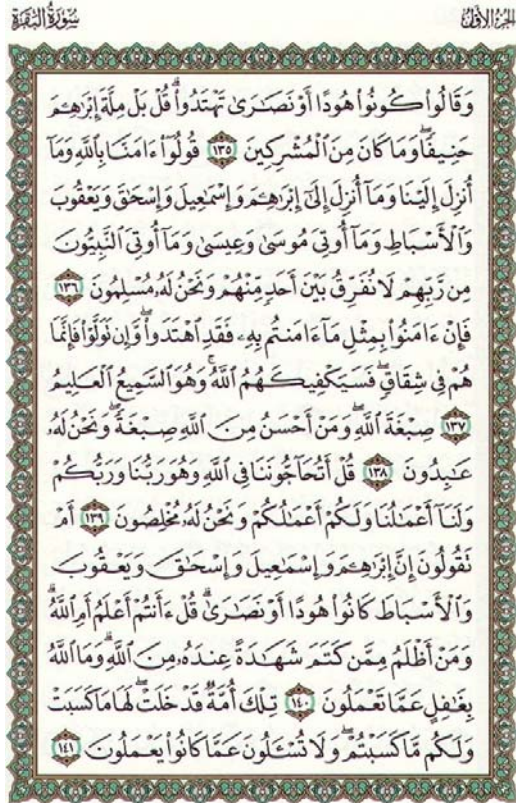 الجزء الأول
سورة البقرة
وَقَالُوا۟ كُونُوا۟ هُودًا أَوْ نَصَـٰرَىٰ تَهْتَدُوا۟ ۗ قُلْ بَلْ مِلَّةَ إِبْرَٰهِـۧمَ
حَنِيفًا ۖ وَمَا كَانَ مِنَ ٱلْمُشْرِكِينَ ١٣٥ قُولُوٓا۟ ءَامَنَّا بِٱللَّهِ وَمَآ
أُنزِلَ إِلَيْنَا وَمَآ أُنزِلَ إِلَىٰٓ إِبْرَٰهِـۧمَ وَإِسْمَـٰعِيلَ وَإِسْحَـٰقَ وَيَعْقُوبَ
وَٱلْأَسْبَاطِ وَمَآ أُوتِىَ مُوسَىٰ وَعِيسَىٰ وَمَآ أُوتِىَ ٱلنَّبِيُّونَ
مِن رَّبِّهِمْ لَا نُفَرِّقُ بَيْنَ أَحَدٍ مِّنْهُمْ وَنَحْنُ لَهُۥ مُسْلِمُونَ ١٣٦
فَإِنْ ءَامَنُوا۟ بِمِثْلِ مَآ ءَامَنتُم بِهِۦ فَقَدِ ٱهْتَدَوا۟ ۖ وَّإِن تَوَلَّوْا۟ فَإِنَّمَا
هُمْ فِى شِقَاقٍ ۖ فَسَيَكْفِيكَهُمُ ٱللَّهُ ۚ وَهُوَ ٱلسَّمِيعُ ٱلْعَلِيمُ
١٣٧ صِبْغَةَ ٱللَّهِ ۖ وَمَنْ أَحْسَنُ مِنَ ٱللَّهِ صِبْغَةً ۖ وَنَحْنُ لَهُۥ
عَـٰبِدُونَ ١٣٨ قُلْ أَتُحَآجُّونَنَا فِى ٱللَّهِ وَهُوَ رَبُّنَا وَرَبُّكُمْ
وَلَنَآ أَعْمَـٰلُنَا وَلَكُمْ أَعْمَـٰلُكُمْ وَنَحْنُ لَهُۥ مُخْلِصُونَ ١٣٩ أَمْ
تَقُولُونَ إِنَّ إِبْرَٰهِـۧمَ وَإِسْمَـٰعِيلَ وَإِسْحَـٰقَ وَيَعْقُوبَ
وَٱلْأَسْبَاطَ كَانُوا۟ هُودًا أَوْ نَصَـٰرَىٰ ۗ قُلْ ءَأَنتُمْ أَعْلَمُ أَمِ ٱللَّهُ ۗ
وَمَنْ أَظْلَمُ مِمَّن كَتَمَ شَهَـٰدَةً عِندَهُۥ مِنَ ٱللَّهِ ۗ وَمَا ٱللَّهُ
بِغَـٰفِلٍ عَمَّا تَعْمَلُونَ ١٤٠ تِلْكَ أُمَّةٌ قَدْ خَلَتْ ۖ لَهَا مَا كَسَبَتْ
وَلَكُم مَّا كَسَبْتُمْ ۖ وَلَا تُسْـَٔلُونَ عَمَّا كَانُوا۟ يَعْمَلُونَ ١٤١